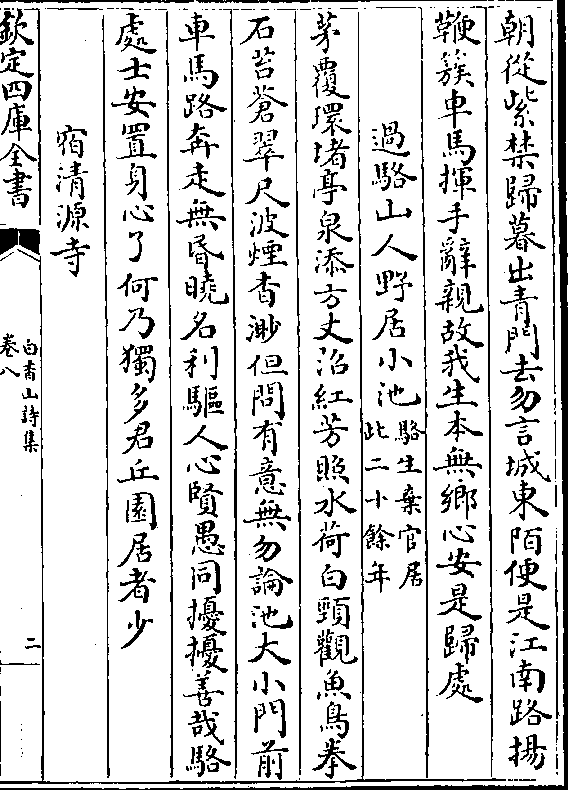 朝從紫禁歸暮出青門去勿言城東陌便是江南路揚
鞭簇車馬揮手辭親故我生本無鄉心安是歸處
過駱山人野居小池駱生棄官居此二十餘年
茅覆環堵亭泉添方丈沼紅芳照水荷白頸觀魚鳥拳
石苔蒼翠尺波煙杳渺但問有意無勿論池大小門前
車馬路奔走無昏曉名利驅人心賢愚同擾擾善哉駱
處士安置身心了何乃獨多君丘園居者少
宿清源寺
欽定四庫全書
白香山詩集
卷八
二